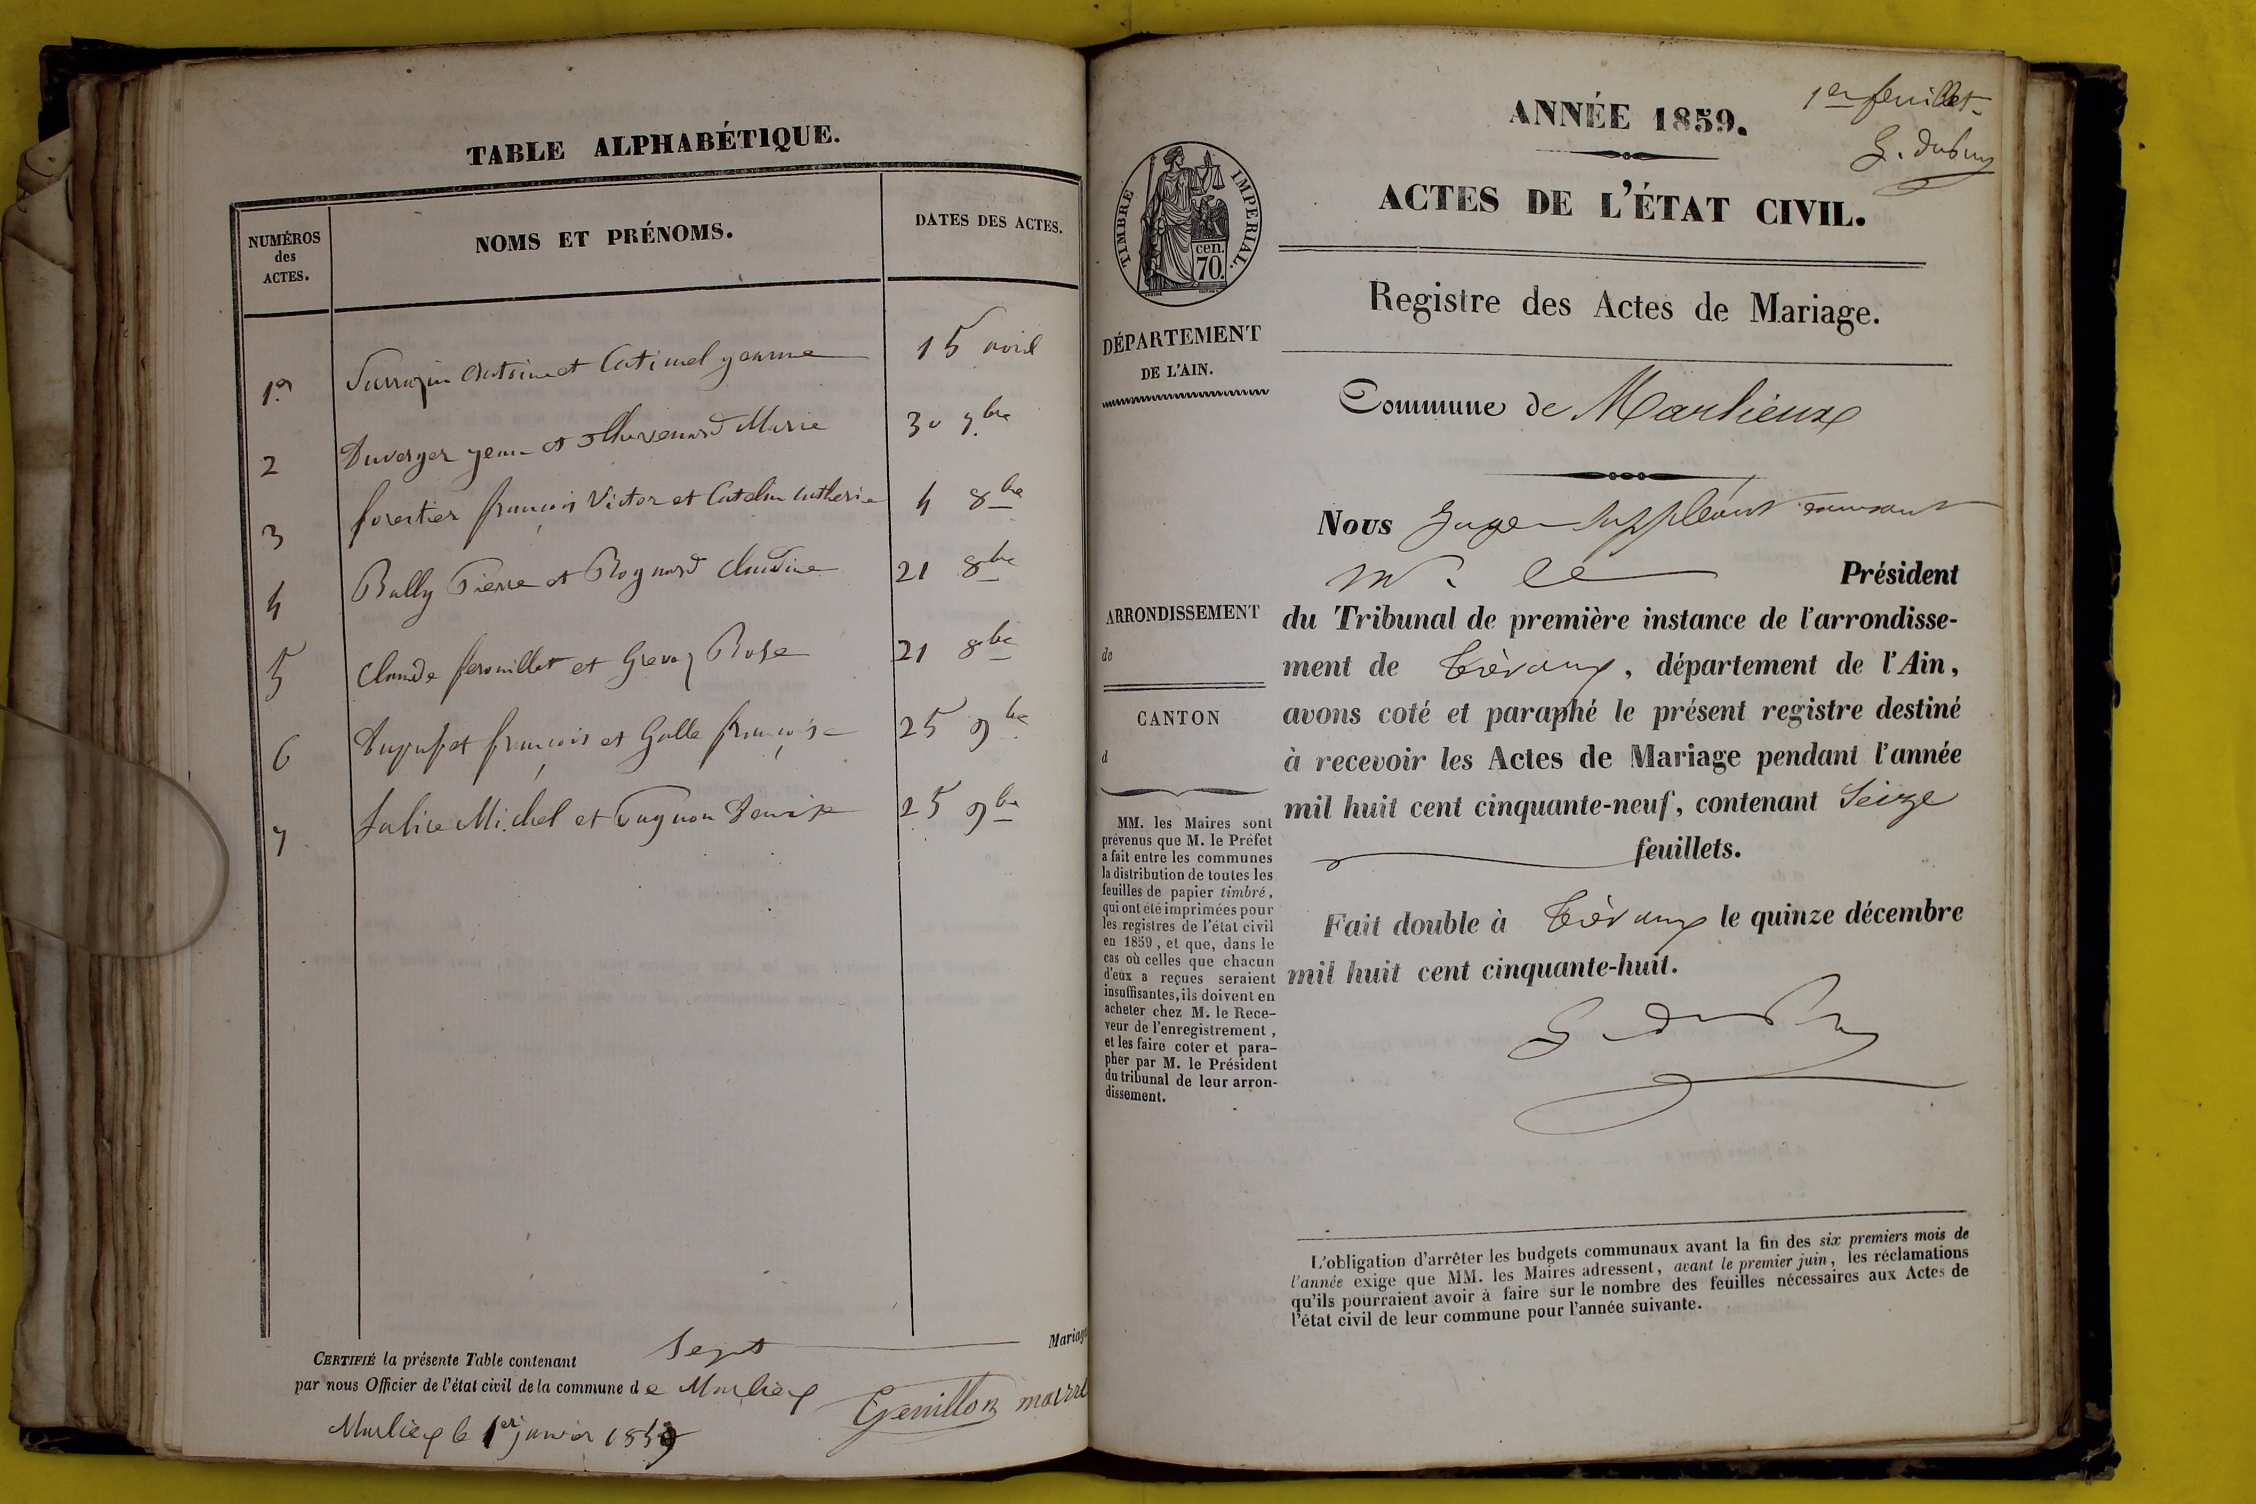 TABLE ALPHABÉTIQUE.
NUMÉROS
des
ACTES.
NOMS ET PRÉNOMS.
DATES DES ACTES.
1er Sarrazin Antoine et Catimel jeanne 15 avril
2 Duverger jean et Marie 30 7bre
3 forestier françois Victor et Catelin 4 8bre
4 Bally Pierre et Claudine 21 8bre
5 Claude ferouillet et Grevoz Rose 21 8bre
6 françois et Galle françoise 25 9bre
7 Michel et Denise 25 9bre
CERTIFIÉ la présente Table contenant Sept Mariage
par nous Officier de l'état civil de la commune de Marlieux
Marlieux le 1er janvier 1859
Genillon maire
1er feuillet
G. Dubuy
ANNÉE 1859.
ACTES DE L'ÉTAT CIVIL.
TIMBRE IMPÉRIAL.
cen.
70.
Registre des Actes de Mariage.
DÉPARTEMENT
DE L'AIN.
Commune de Marlieux
Nous Juge suppléant
Mr. le Président
du Tribunal de première instance de l'arrondisse-
ment de Trévoux, département de l'Ain,
avons coté et paraphé le présent registre destiné
à recevoir les Actes de Mariage pendant l'année
mil huit cent cinquante-neuf, contenant Seize
feuillets.
Fait double à Trévoux le quinze décembre
mil huit cent cinquante-huit.
G. Dubuy
ARRONDISSEMENT
de
CANTON
d
MM. les Maires sont
prévenus que M. le Préfet
a fait entre les communes
la distribution de toutes les
feuilles de papier timbré,
qui ont été imprimées pour
les registres de l'état civil
en 1859, et que, dans le
cas où celles que chacun
d'eux a reçues seraient
insuffisantes, ils doivent en
acheter chez M. le Rece-
veur de l'enregistrement,
et les faire coter et para-
pher par M. le Président
du tribunal de leur arron-
dissement.
L'obligation d'arrêter les budgets communaux avant la fin des six premiers mois de
l'année exige que MM. les Maires adressent, avant le premier juin, les réclamations
qu'ils pourraient avoir à faire sur le nombre des feuilles nécessaires aux Actes de
l'état civil de leur commune pour l'année suivante.